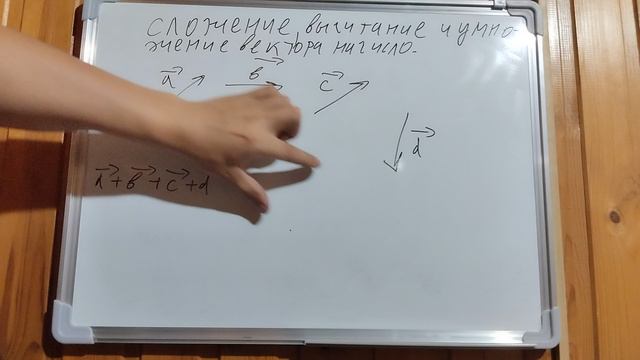 сложение, вычитание и умно-
жение вектора на число.
a b c
d
a + b + c + d